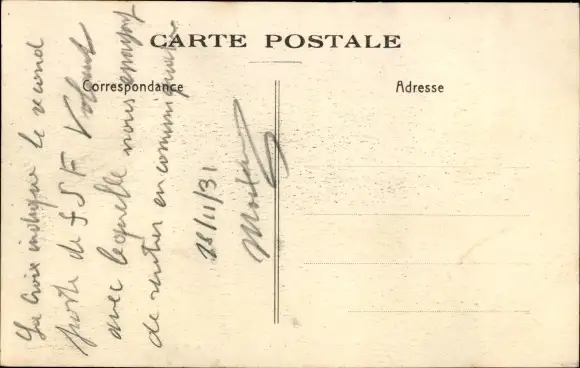 CARTE POSTALE
Correspondance
Adresse
La Croix indique le second
poste de TSF Volant
avec lequelle nous essayons
de rentrer en communication
28/11/31